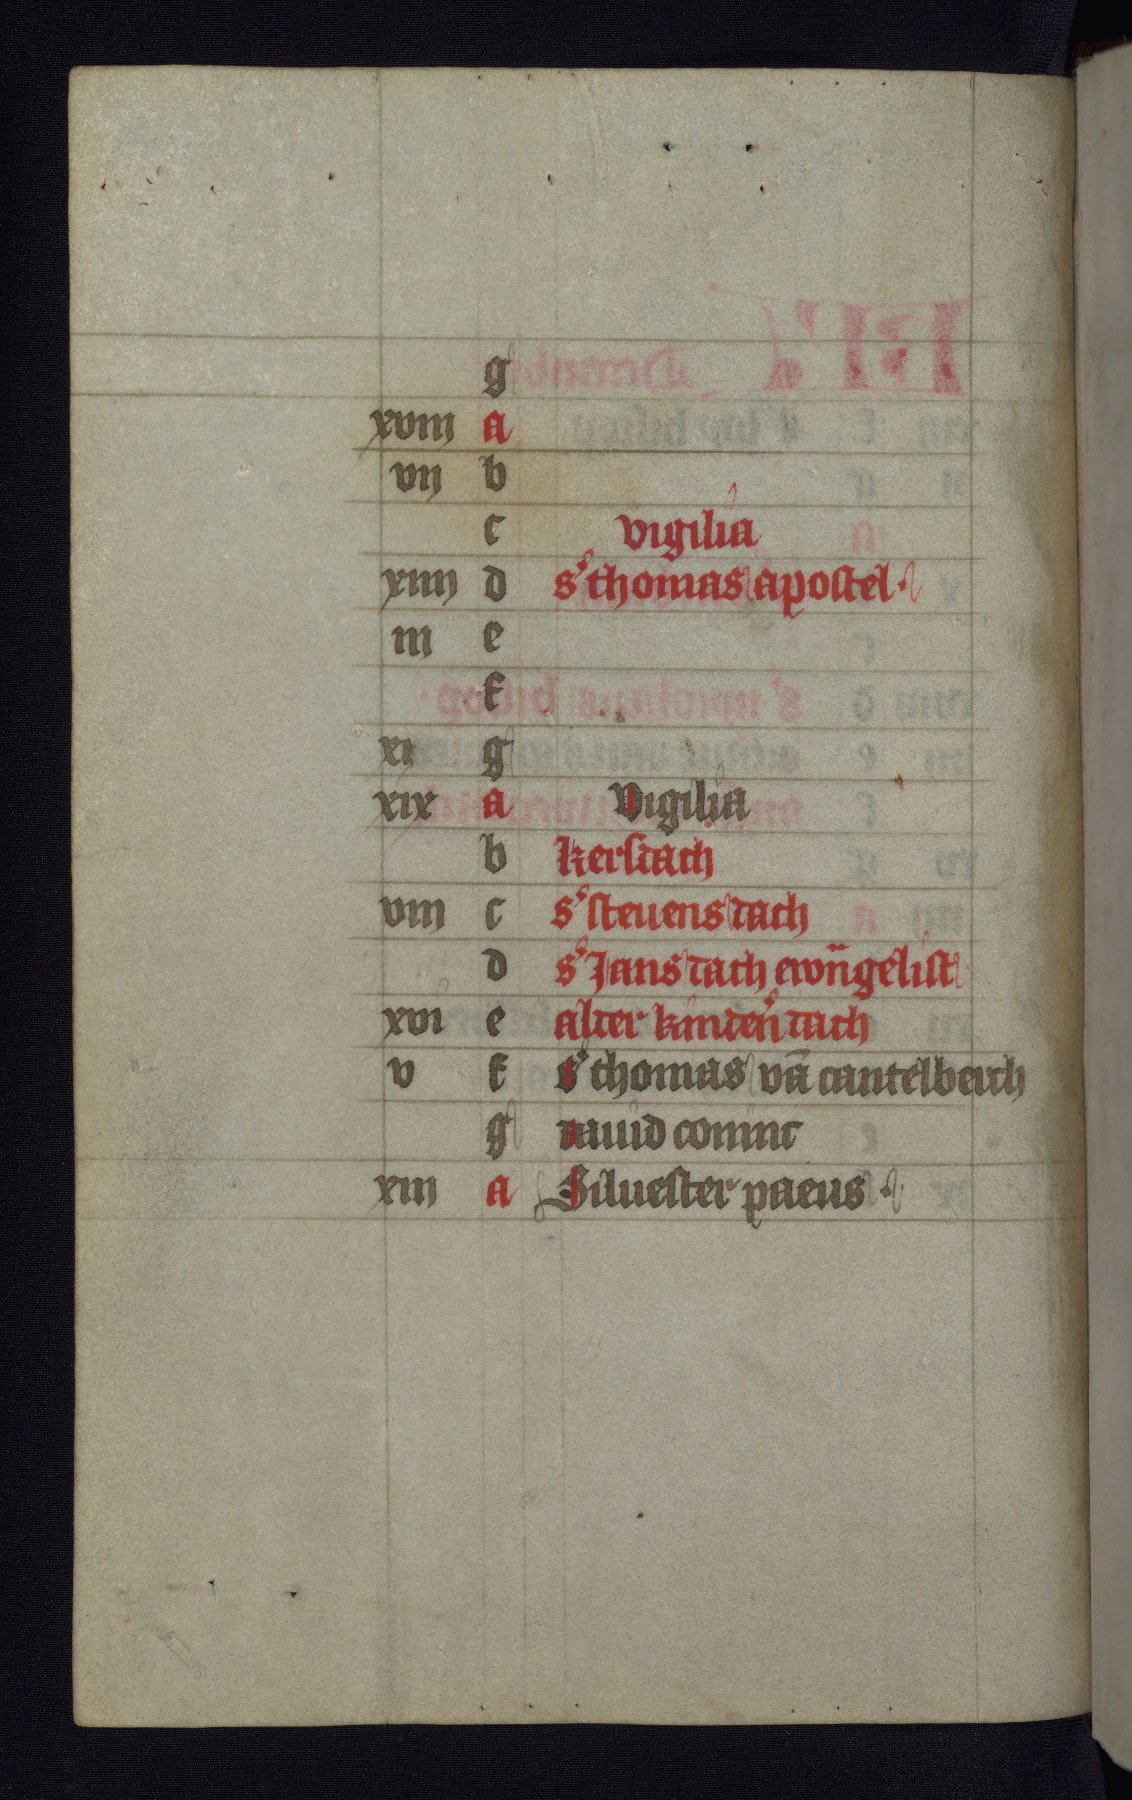 g
xviij a
vij b
c vigilia
xiiij d s' thomas apostel
iij e
f
xi g
xix a Vigilia
b kerstach
viij c s' steuens tach
d s' Jans tach ewñgelist
xvi e alter kinteñ tach
v f s' thomas vā cantelberch
g dauid coninc
xiij a Siluester paeus